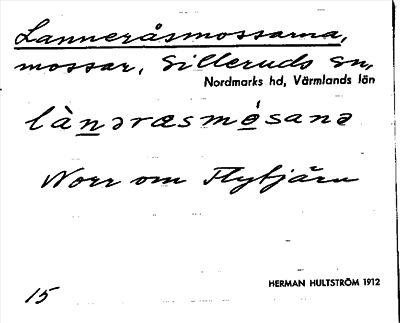 Lanneråsmossarna,
mossar, Silleruds sn,
Nordmarks hd, Värmlands län
lànəræsmósanə
Norr om Flytjärn
HERMAN HULTSTRÖM 1912
15